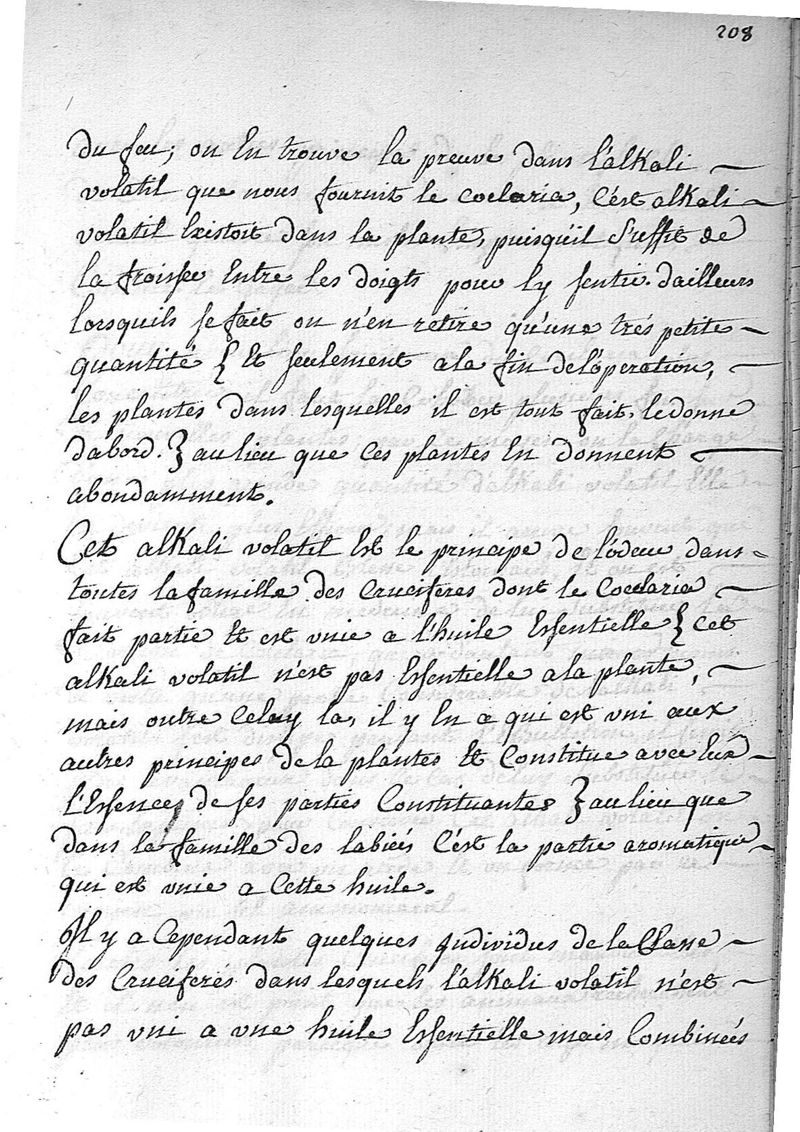 208
du feu; on En trouve la preuve dans l'alkali
volatil que nous fournit le coclaria, C'est alkali
volatil Existoit dans la plante, puisqu'il Suffit de
la froisse Entre les doigts pour ly sentir. dailleurs
lorsquils se fait on n'en retire qu'une trés petite
quantité { Et seulement a la fin de l'operation,
les plantes dans lesquelles il est tout fait, le donne
dabord. } au lieu que Ces plantes En donnent
abondamment.
Cet alkali volatil Est le principe de lodeur dans
toutes la famille des Cruciferes dont le Coclaria
fait partie Et est unie a l'huile Essentielle { Cet
alkali volatil n'est pas Essentielle a la plante,
mais outre Celuy la, il y En a qui est uni aux
autres principes de la plantes Et Constitue avec Eux
l'Essences de ses parties Constituantes } au lieu que
dans la famille des labiés C'est la partie aromatique
qui est unie a Cette huile.
Il y a Cependant quelques individus de la Classe
des Cruciferés dans lesquels l'alkali volatil n'est
pas uni a une huile Essentielle mais Combineés